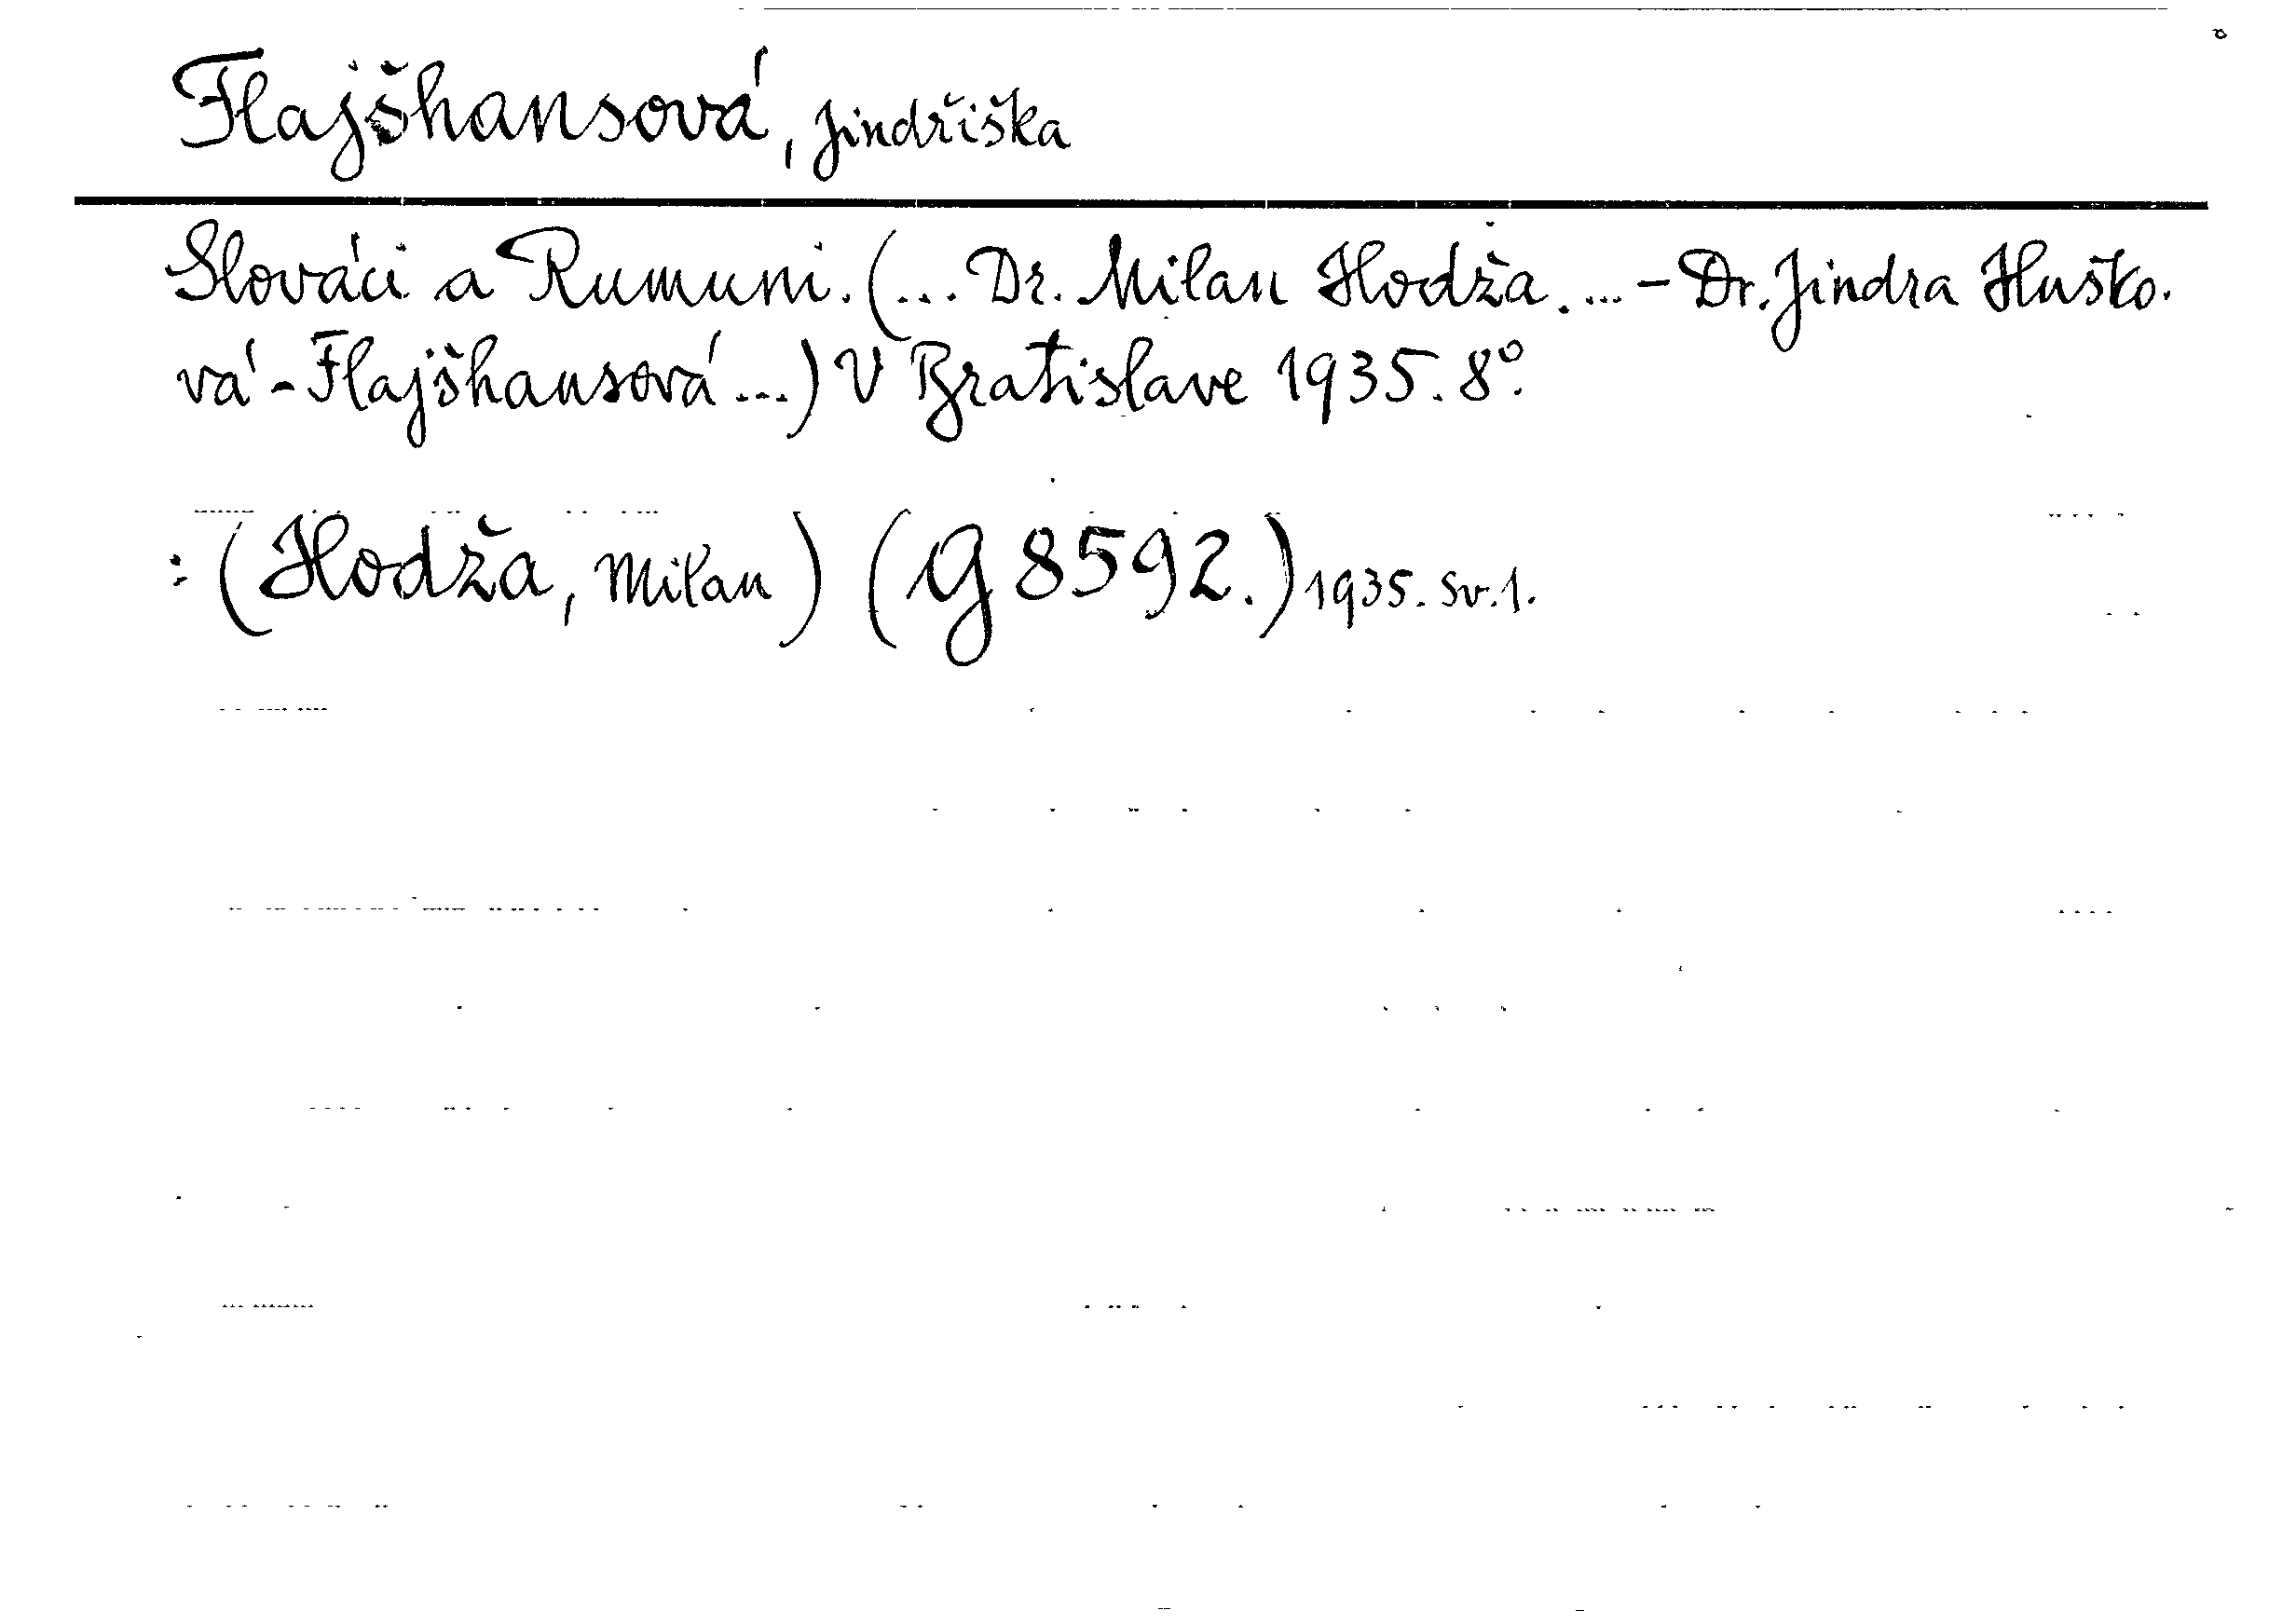 Flajšhansová, Jindřiška
Slováci a Rumuni. (... Dr. Milan Hodža. ... - Dr. Jindra Huško-
vá-Flajšhansová ...) V Bratislave 1935. 8°.
: (Hodža, Milan) (G 8592.) 1935. Sv. 1.